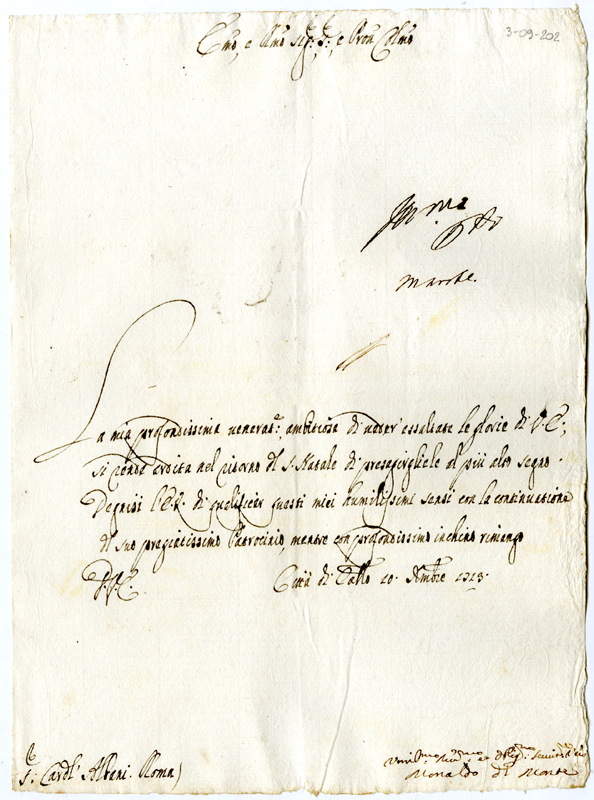 3-09-202
Emo, e Rmo Sig:r, e Pron Colmo
Marche.
La mia profondissima venerat:e ambitiosa di veder' essaltate le glorie di V. E.,
si rende ardita nel ritorno del S. Natale di presagirgliele al più alto segno.
Degnisi l'E.V. di qualificar questi miei humilissimi sensi con la continuatione
di suo pregiatissimo Patrocinio, mentre con profondissimo inchino rimango
D. V. E. Città di Castello 10. Xmbre 1713.
S:r Cardl' Albani. Roma)
Monaldo di Monte